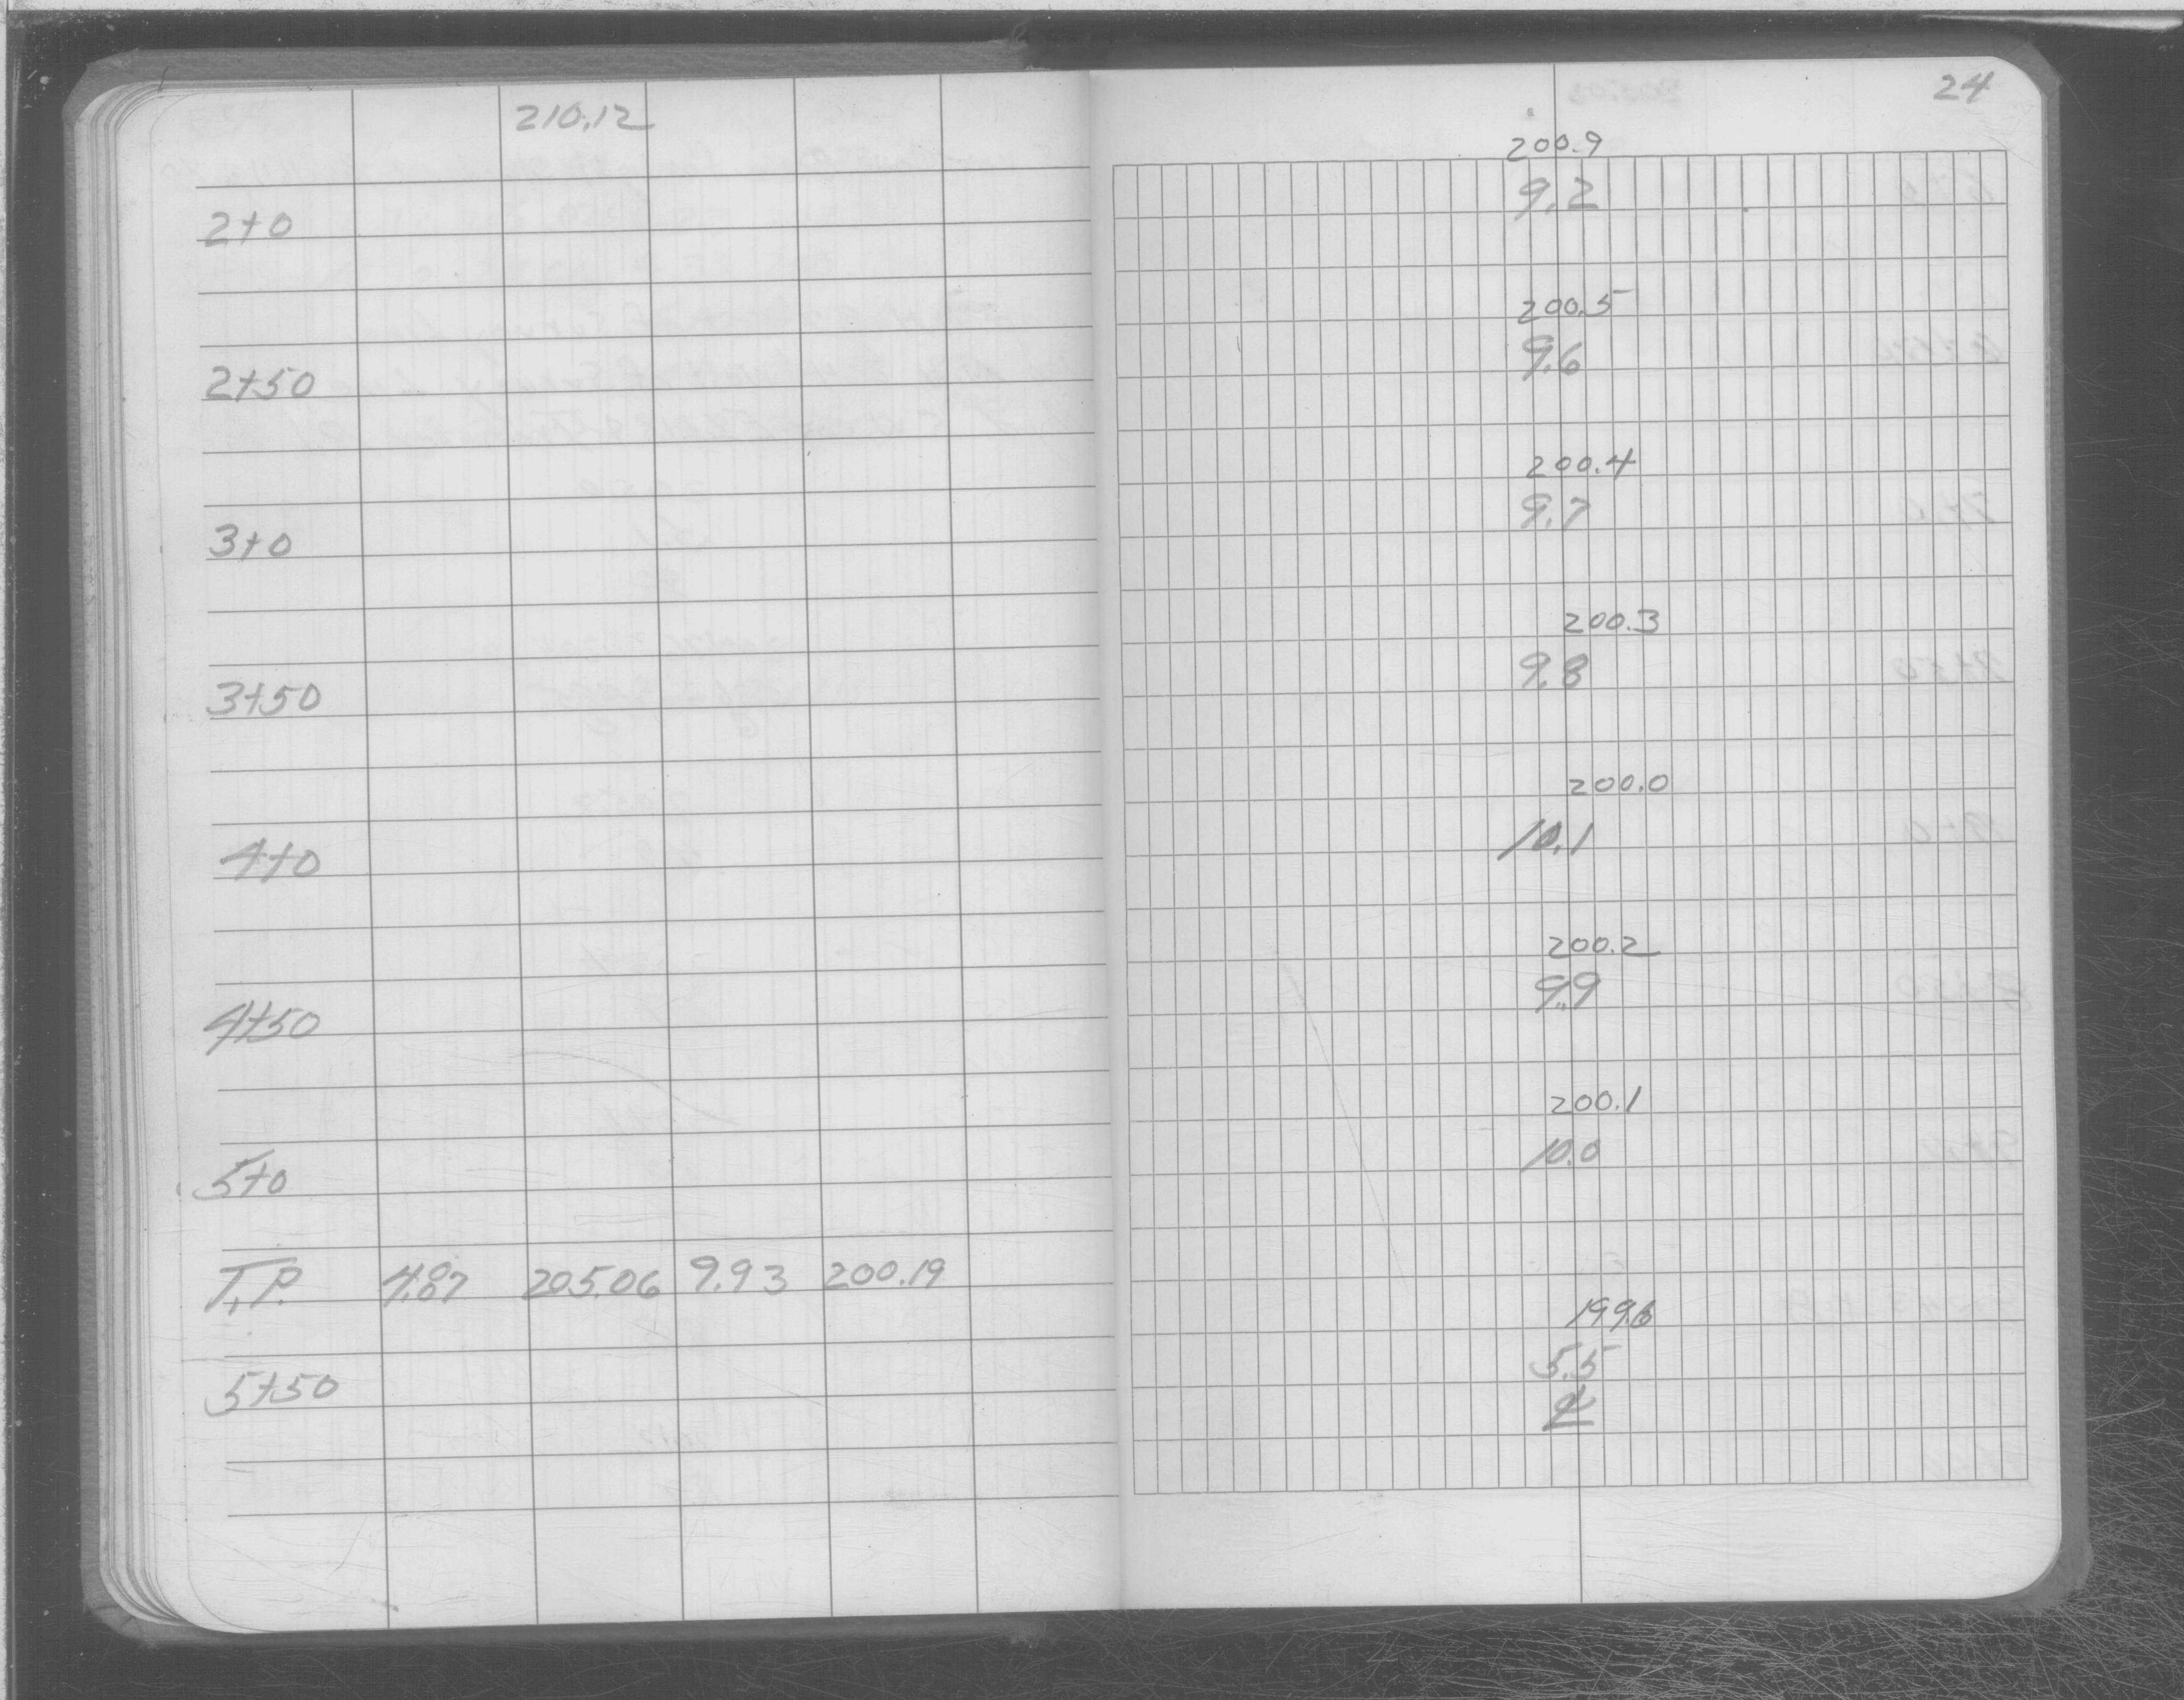 24
210.12
200.9
2+0 9.2
200.5
2+50 9.6
200.4
3+0 9.7
200.3
3+50 9.8
200.0
4+0 10.1
200.2
4+50 9.9
200.1
5+0 10.0
T.P. 4.87 205.06 9.93 200.19
199.6
5+50 5.5